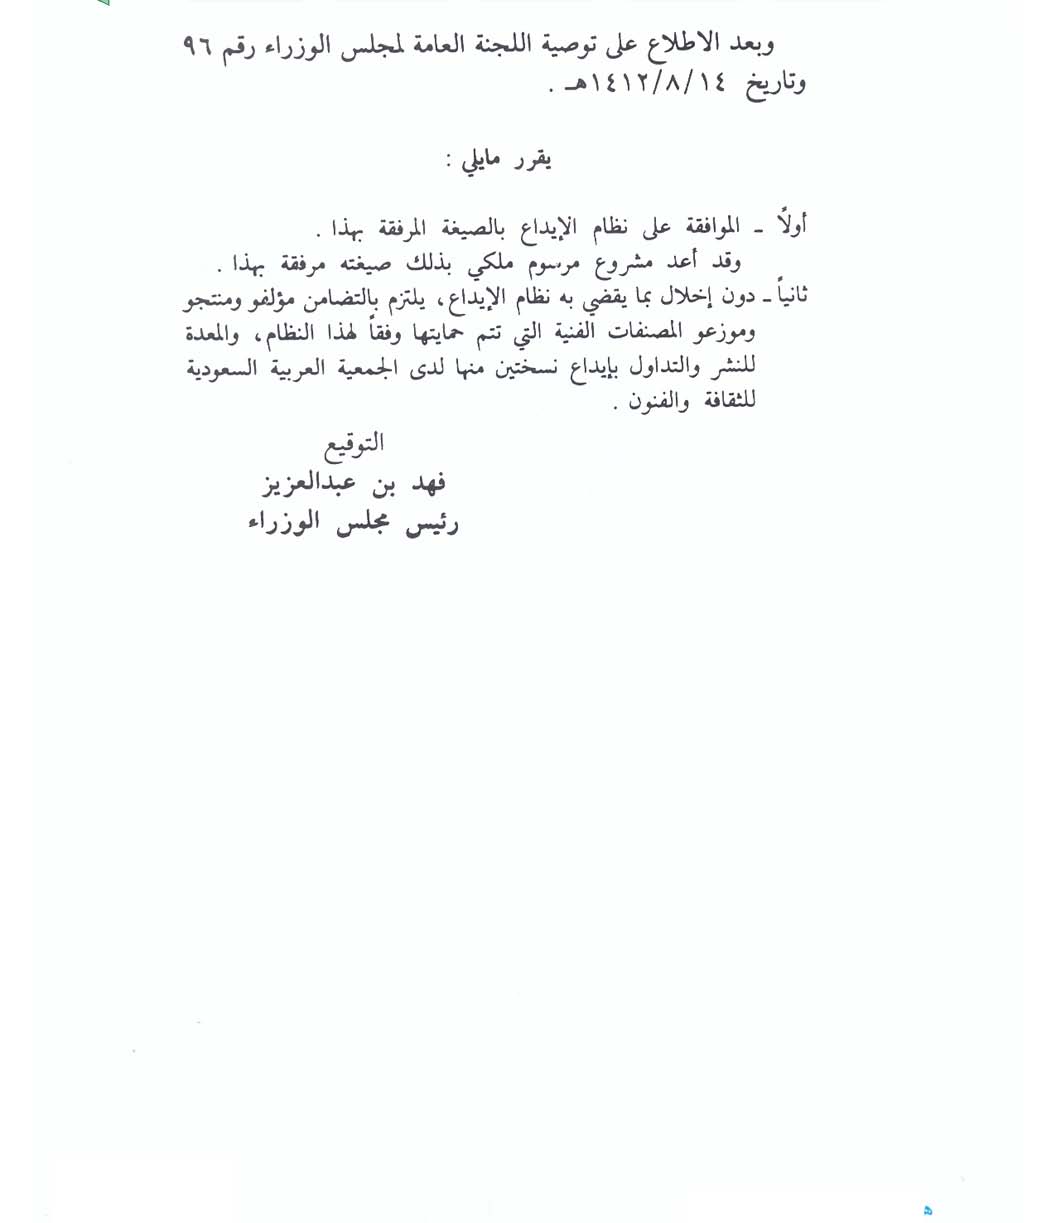 وبعد الاطلاع على توصية اللجنة العامة لمجلس الوزراء رقم ٩٦
وتاريخ ١٤١٢/٨/١٤هـ .
يقرر مايلي :
أولاً ـ الموافقة على نظام الإيداع بالصيغة المرفقة بهذا .
وقد أعد مشروع مرسوم ملكي بذلك صيغته مرفقة بهذا .
ثانياً ـ دون إخلال بما يقضي به نظام الإيداع، يلتزم بالتضامن مؤلفو ومنتجو
وموزعو المصنفات الفنية التي تتم حمايتها وفقاً لهذا النظام، والمعدة
للنشر والتداول بإيداع نسختين منها لدى الجمعية العربية السعودية
للثقافة والفنون .
التوقيع
فهد بن عبدالعزيز
رئيس مجلس الوزراء